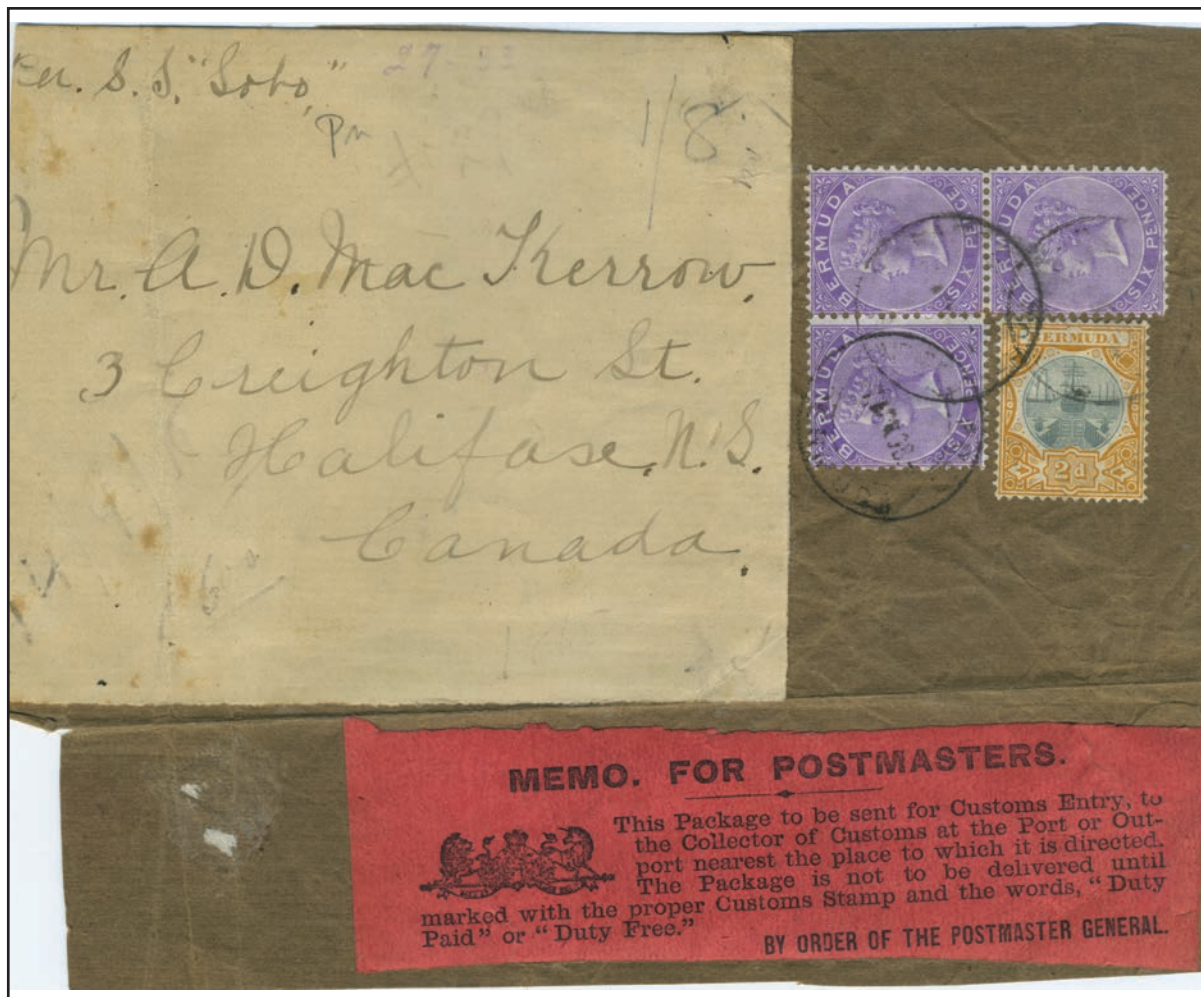 Per. S. S. "Sobo"
27
Pm
1/8
Mr. A. D. Mac Kerrow,
3 Creighton St.
Halifax, N.S.
Canada
BERMUDA SIX PENCE
BERMUDA SIX PENCE
BERMUDA SIX PENCE
BERMUDA
2d
MEMO. FOR POSTMASTERS.
This Package to be sent for Customs Entry, to
the Collector of Customs at the Port or Out-
port nearest the place to which it is directed.
The Package is not to be delivered until
marked with the proper Customs Stamp and the words, "Duty
Paid" or "Duty Free."
BY ORDER OF THE POSTMASTER GENERAL.